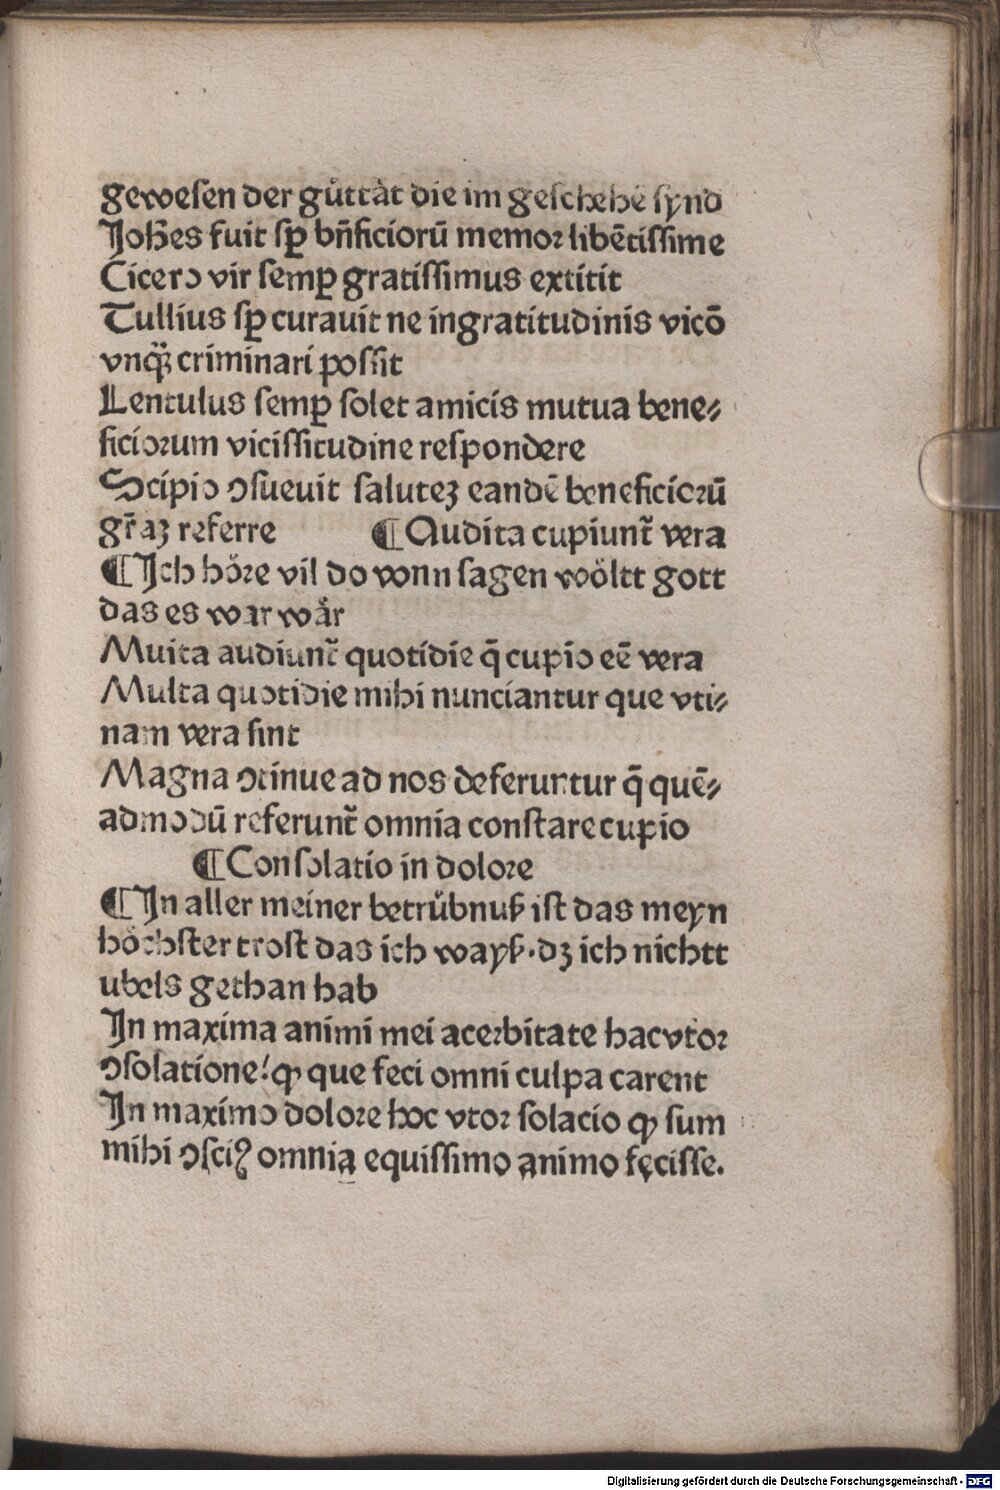 gewesen der gůttàt die im geschehẽ synd
Joh̃es fuit sꝑ bñficiorũ memoꝛ libẽtissime
Cicero vir semꝑ gratissimus extitit
Tullius sꝑ curauit ne ingratitudinis vicõ
vnqͣ̃ criminari possit
Lentulus semꝑ solet amicis mutua bene⸗
ficioꝛum vicissitudine respondere
Scipio ꝯsueuit salutez eandẽ beneficioꝛũ
gr̃az referre ¶ Audita cupiunt̃ vera
¶ Ich hȍꝛe vil do vonn sagen wöltt gott
das es war wår
Muita audiunt̃ quotidie q̃ cupio eẽ vera
Multa quotidie mihi nunciantur que vti⸗
nam vera sint
Magna ꝯtinue ad nos deferuntur q̃ quẽ⸗
admodũ referunt̃ omnia constare cupio
¶ Consolatio in dolore
¶ In aller meiner betrůbnuß ist das meyn
höchster trost das ich wayß·dz ich nichtt
ubels gethan hab
In maxima animi mei acerbitate hac vtoꝛ
ꝯsolatione! ꝙ que feci omni culpa carent
In maximo dolore hoc vtoꝛ solacio ꝙ sum
mihi ꝯsciꝰ omnia equissimo animo fęcisse.
Digitalisierung gefördert durch die Deutsche Forschungsgemeinschaft - DFG